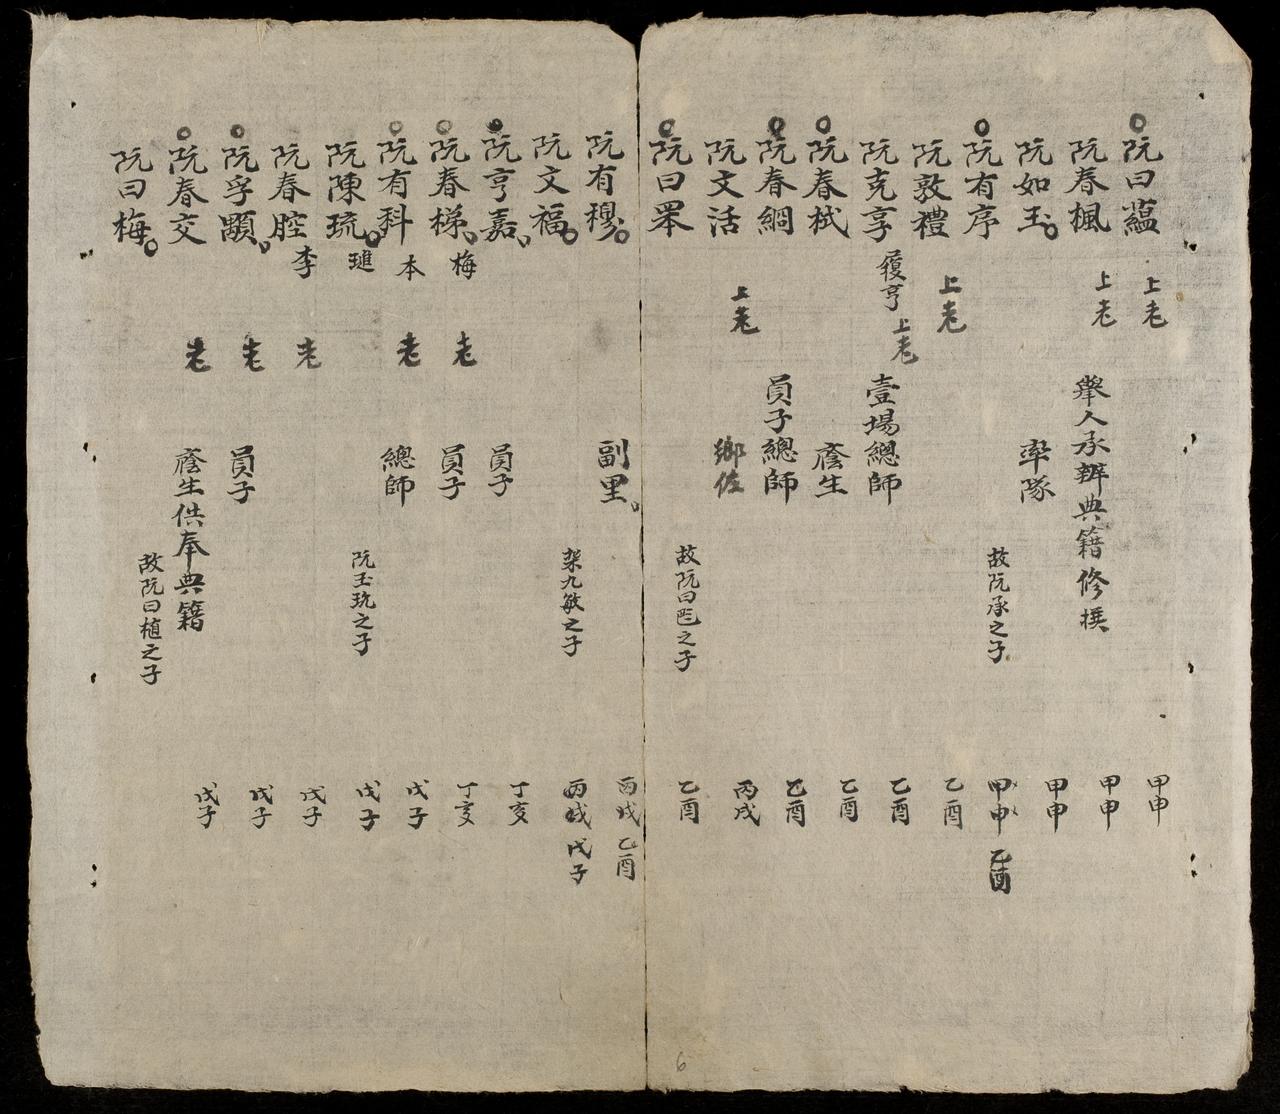 阮曰蘊 上老 甲申
阮春楓 上老 舉人承辨典籍修撰 甲申
阮如玉 率隊 甲申
阮有序 故阮承之子 甲申 乙酉
阮敦禮 上老 乙酉
阮克享 履亨 上老 壹場總師 乙酉
阮春栻 廕生 乙酉
阮春綱 員子總師 乙酉
阮文活 上老 鄉佐 丙戌
阮曰 故阮曰 之子 乙酉
阮有穆 副里 丙戌 乙酉
阮文福 架九敏之子 丙戌 戊子
阮亨嘉 員子 丁亥
阮春梯 梅 老 員子 丁亥
阮有科 本 老 總師 戊子
阮陳琉 璡 阮玉玩之子 戊子
阮春腔 李 老 戊子
阮孚顒 老 員子 戊子
阮春交 老 廕生供奉典籍 戊子
阮曰梅 故阮曰植之子
6